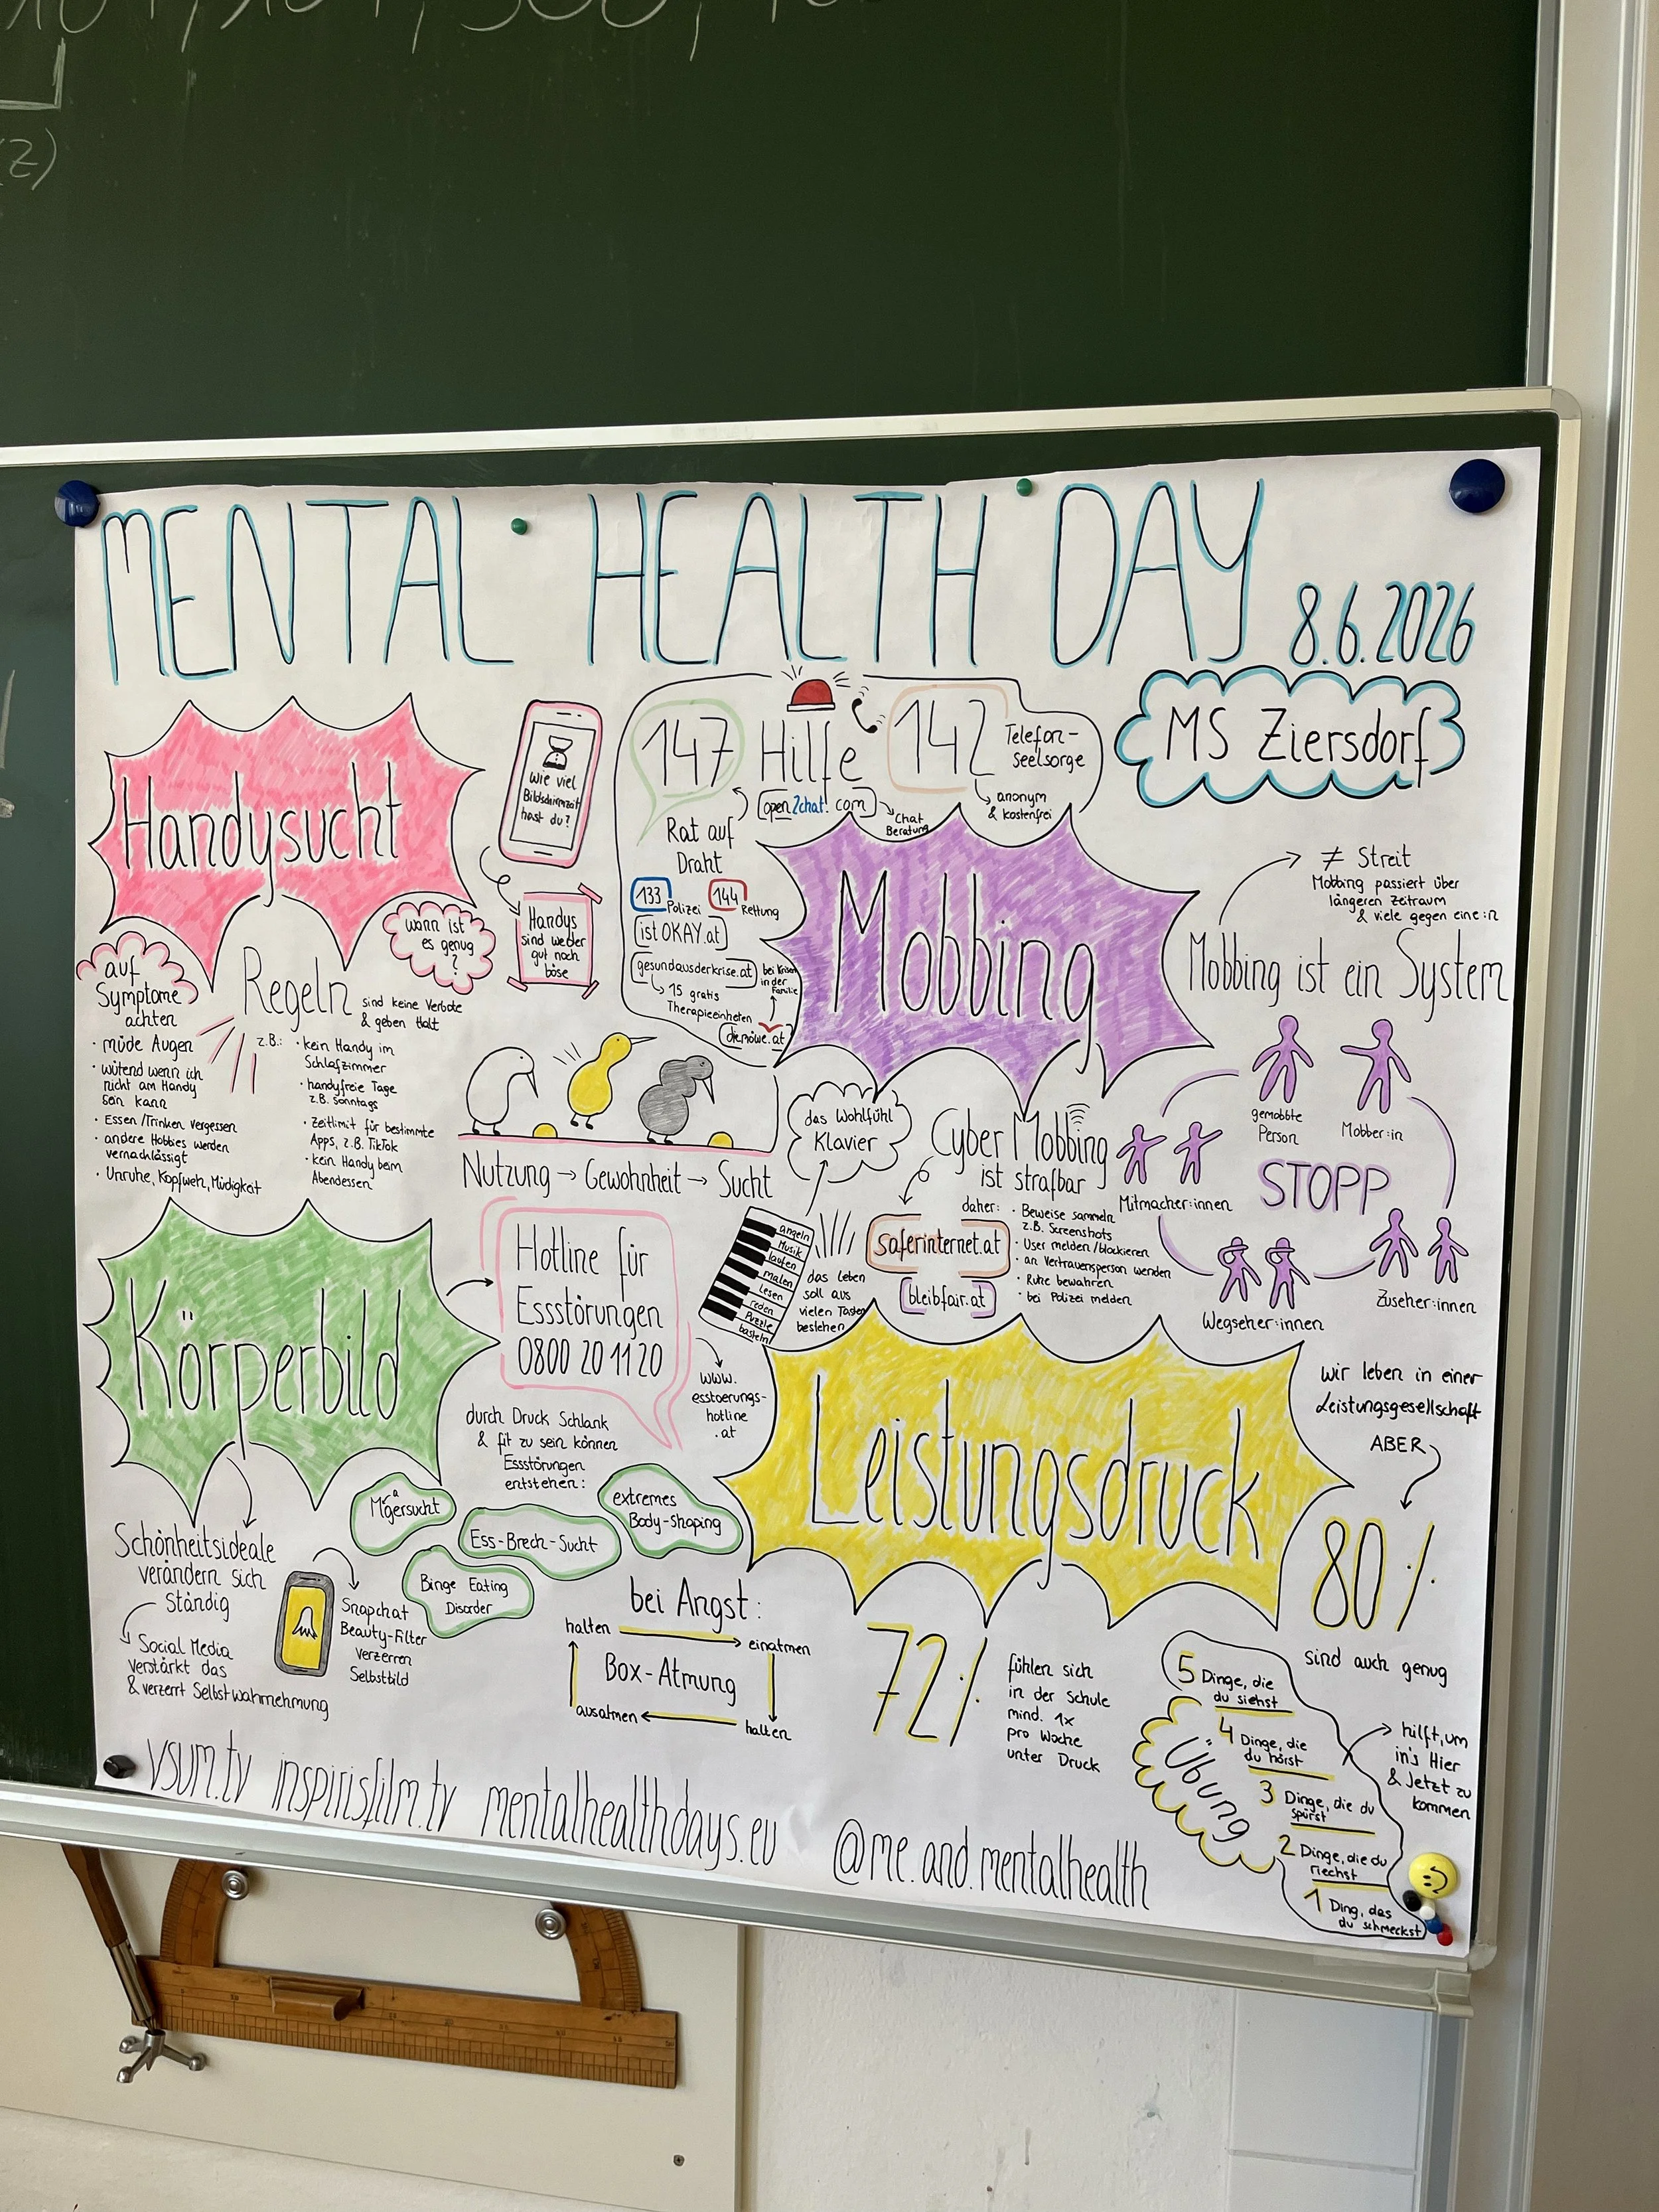 MENTAL HEALTH DAY 8.6.2026
MS Ziersdorf
Handysucht
Wie viel
Bildschirmzeit
hast du?
Handys
sind weder
gut noch
böse
wann ist
es genug
?
auf
Symptome
achten
• müde Augen
• wütend wenn ich
nicht am Handy
sein kann
• Essen/Trinken vergessen
• andere Hobbies werden
vernachlässigt
• Unruhe, Kopfweh, Müdigkeit
Regeln sind keine Verbote
& geben Halt
z.B.: • kein Handy im
Schlafzimmer
• handyfreie Tage
z.B. Sonntags
• Zeitlimit für bestimmte
Apps, z.B. TikTok
• kein Handy beim
Abendessen
Nutzung → Gewohnheit → Sucht
147 Hilfe 142 Telefon-
seelsorge
anonym
& kostenfrei
open2chat.com
Chat
Beratung
Rat auf
Draht
133 Polizei 144 Rettung
istOKAY.at
gesundausderkrise.at
15 gratis
Therapieeinheiten
bei Krisen
in der
Familie
diemöwe.at
Mobbing
≠ Streit
Mobbing passiert über
längeren Zeitraum
& viele gegen eine:n
Mobbing ist ein System
gemobbte
Person
Mobber:in
Mitmacher:innen
STOPP
Wegseher:innen
Zuseher:innen
Cyber Mobbing
ist strafbar
daher: • Beweise sammeln
z.B. Screenshots
• User melden/blockieren
• an Vertrauensperson wenden
• Ruhe bewahren
• bei Polizei melden
saferinternet.at
bleibfair.at
das Wohlfühl
Klavier
angeln
Musik
laufen
malen
Lesen
reden
Puzzle
basteln
das Leben
soll aus
vielen Tasten
bestehen
Körperbild
Hotline für
Essstörungen
0800 20 11 20
www.
esstoerungs-
hotline
.at
durch Druck Schlank
& fit zu sein können
Essstörungen
entstehen:
Magersucht
Ess-Brech-Sucht
extremes
Body-shaping
Binge Eating
Disorder
Schönheitsideale
verändern sich
Ständig
Social Media
verstärkt das
& verzerrt Selbstwahrnehmung
Snapchat
Beauty-Filter
verzerren
Selbstbild
bei Angst:
halten
einatmen
Box-Atmung
ausatmen
halten
Leistungsdruck
wir leben in einer
Leistungsgesellschaft
ABER
80%
sind auch genug
72%
fühlen sich
in der Schule
mind. 1x
pro Woche
unter Druck
Übung
5 Dinge, die
du siehst
4 Dinge, die
du hörst
3 Dinge, die du
spürst
2 Dinge, die du
riechst
1 Ding, das
du schmeckst
hilft, um
in's Hier
& Jetzt zu
kommen
vsum.tv inspirisfilm.tv mentalhealthdays.eu @me.and.mentalhealth